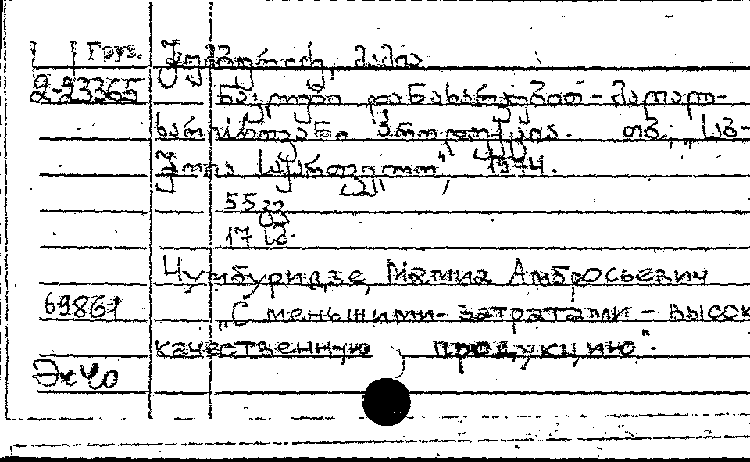 Груз. ჭუმბურიძე, მამია
2-23365 ნაკლები დანახარჯებით - მაღალ-
ხარისხოვანი პროდუქცია. თბ., „საბ-
ჭოთა საქართველო", 1974.
55 გვ
17 სმ.
Чумбуридзе, Мамиа Амбросьевич
69861 „С меньшими затратами - высок
качественную продукцию".